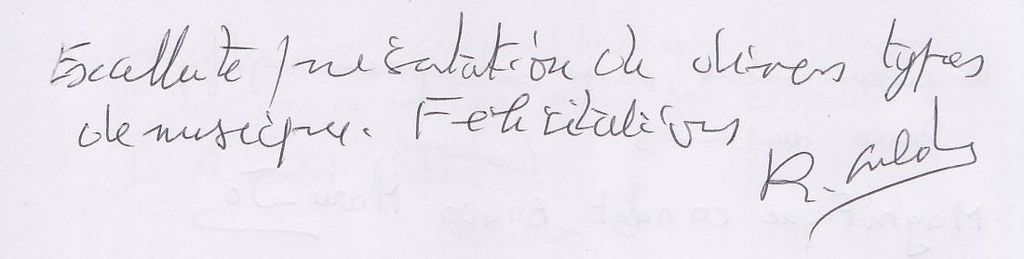 Excellente présentation de divers types
de musique. Félicitations
R.